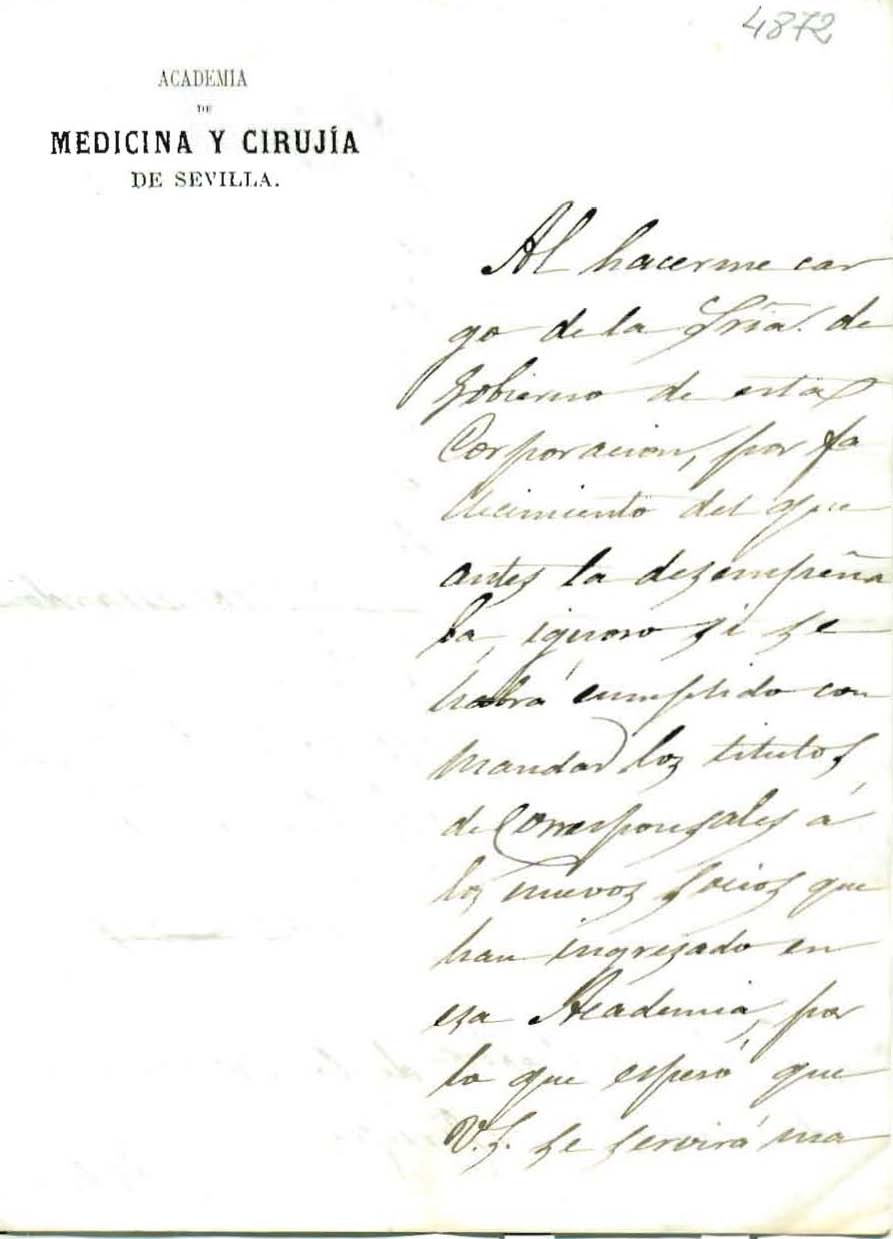 4872
ACADEMIA
DE
MEDICINA Y CIRUJÍA
DE SEVILLA.
Al hacerme car
go de la Sría. de
Gobierno de esta
Corporacion, por fa
llecimiento del que
antes la desempeña
ba, ignoro si se
habrá cumplido con
mandar los titulos
de Corresponsales á
los nuevos socios que
han ingresado en
esa Academia, por
lo que esperó que
V.S. se servirá ma